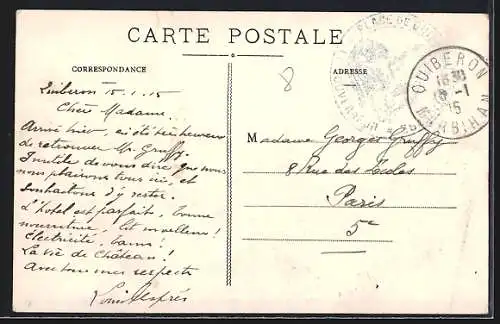 CARTE POSTALE
CORRESPONDANCE
ADRESSE
8
PLACE DE
QUIBERON
MORBIHAN
Quiberon 15.1.15
Chère Madame.
Arrivé hier, ai été bien heureux
de retrouver Mr. Gruffy.
Inutile de vous dire que nous
nous plaisons tous ici, et
souhaitons d'y rester.
L'hotel est parfait, bonne
nourriture, lit moelleux!
Electricité, bains!
La vie de Château!
Avec tous mes respects
Louis
Madame Georges Gruffy
8 Rue des Ecoles
Paris
5e